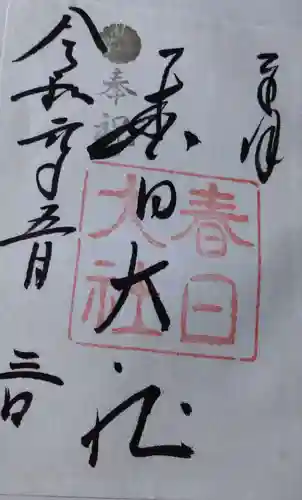 奉拝
奉祝
春日大社
春日
大社
令和元年五月三日